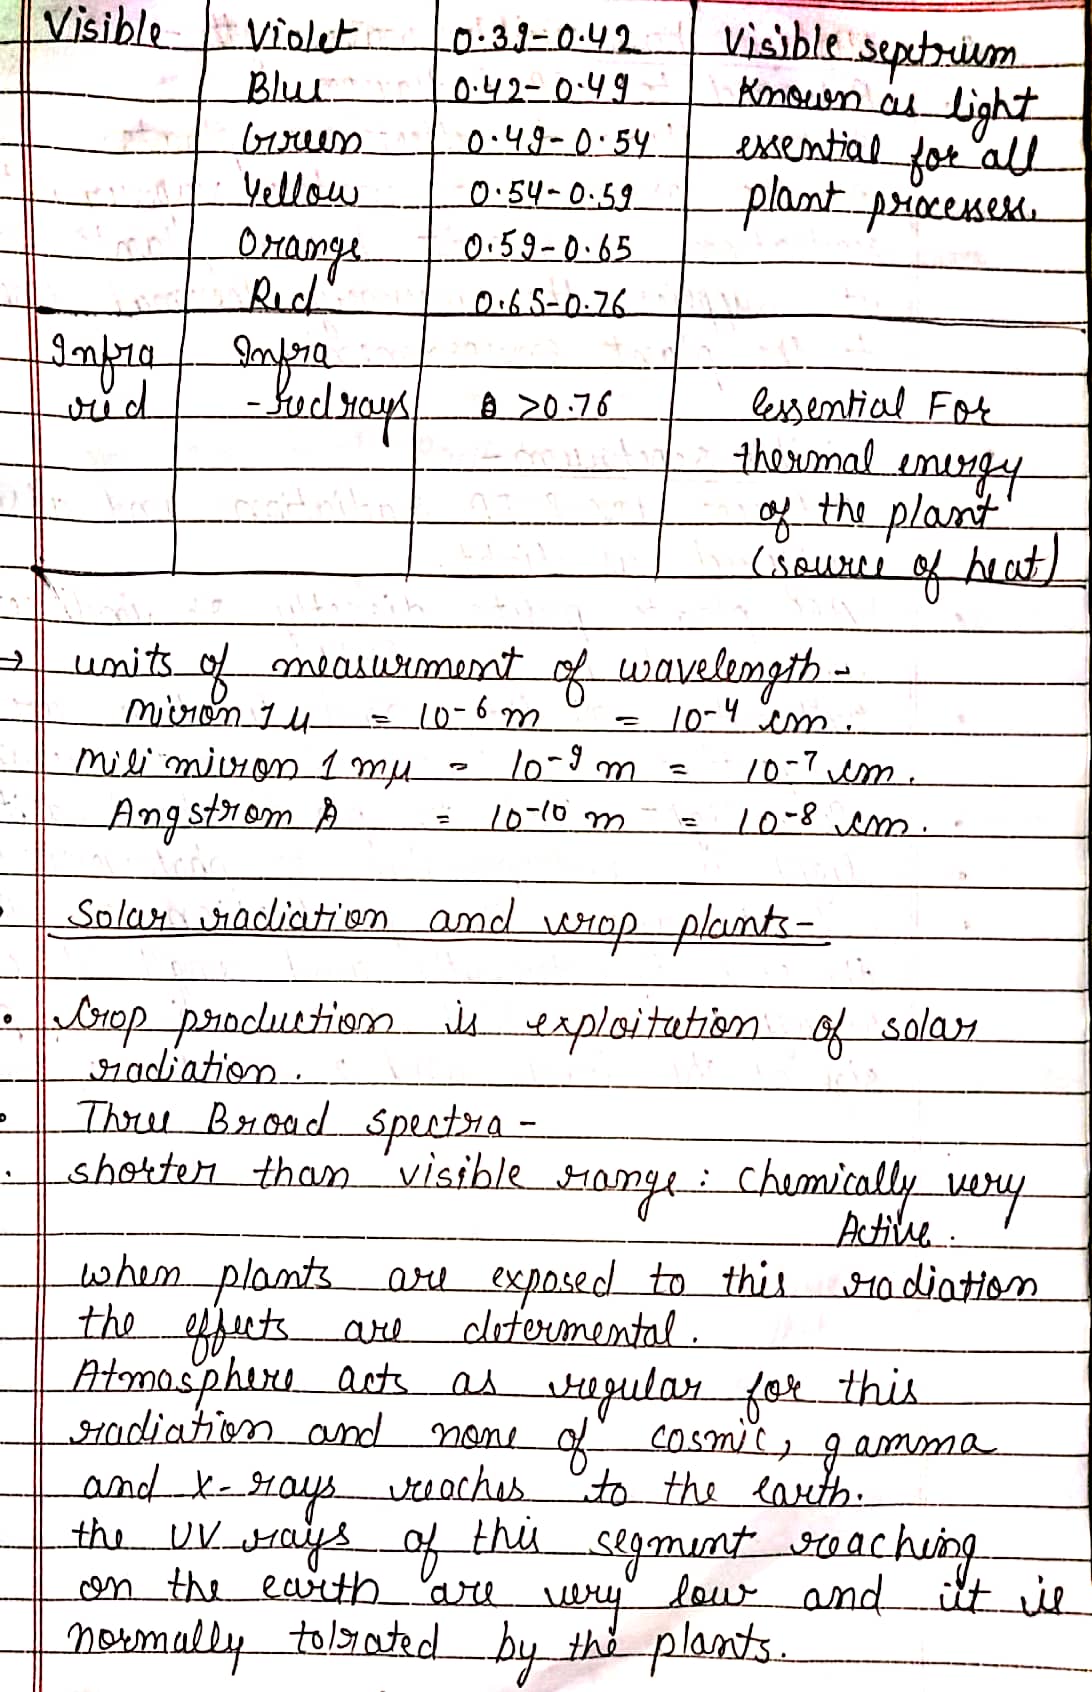 Visible Violet 0.39-0.42 Visible sepctrium
Blue 0.42-0.49 Known as light
Green 0.49-0.54 essential for all
Yellow 0.54-0.59 plant processess.
Orange 0.59-0.65
Red 0.65-0.76
Infra Infra
red -red rays >0.76 essential For
thermal energy
of the plant
(source of heat)
→ units of measurment of wavelength -
micron 1 μ = 10-6 m = 10-4 cm.
Mili micron 1 mμ = 10-9 m = 10-7 cm.
Angstrom Å = 10-10 m = 10-8 cm.
Solar radiation and crop plants-
• Crop production is exploitation of solar
radiation.
• Three Broad spectra -
• shorter than visible range : Chemically very
Active.
when plants are exposed to this radiation
the effects are determental.
Atmosphere acts as regular for this
radiation and none of cosmic, gamma
and X-rays reaches to the earth.
the UV rays of this segment reaching
on the earth are very low and it is
normally tolrated by the plants.